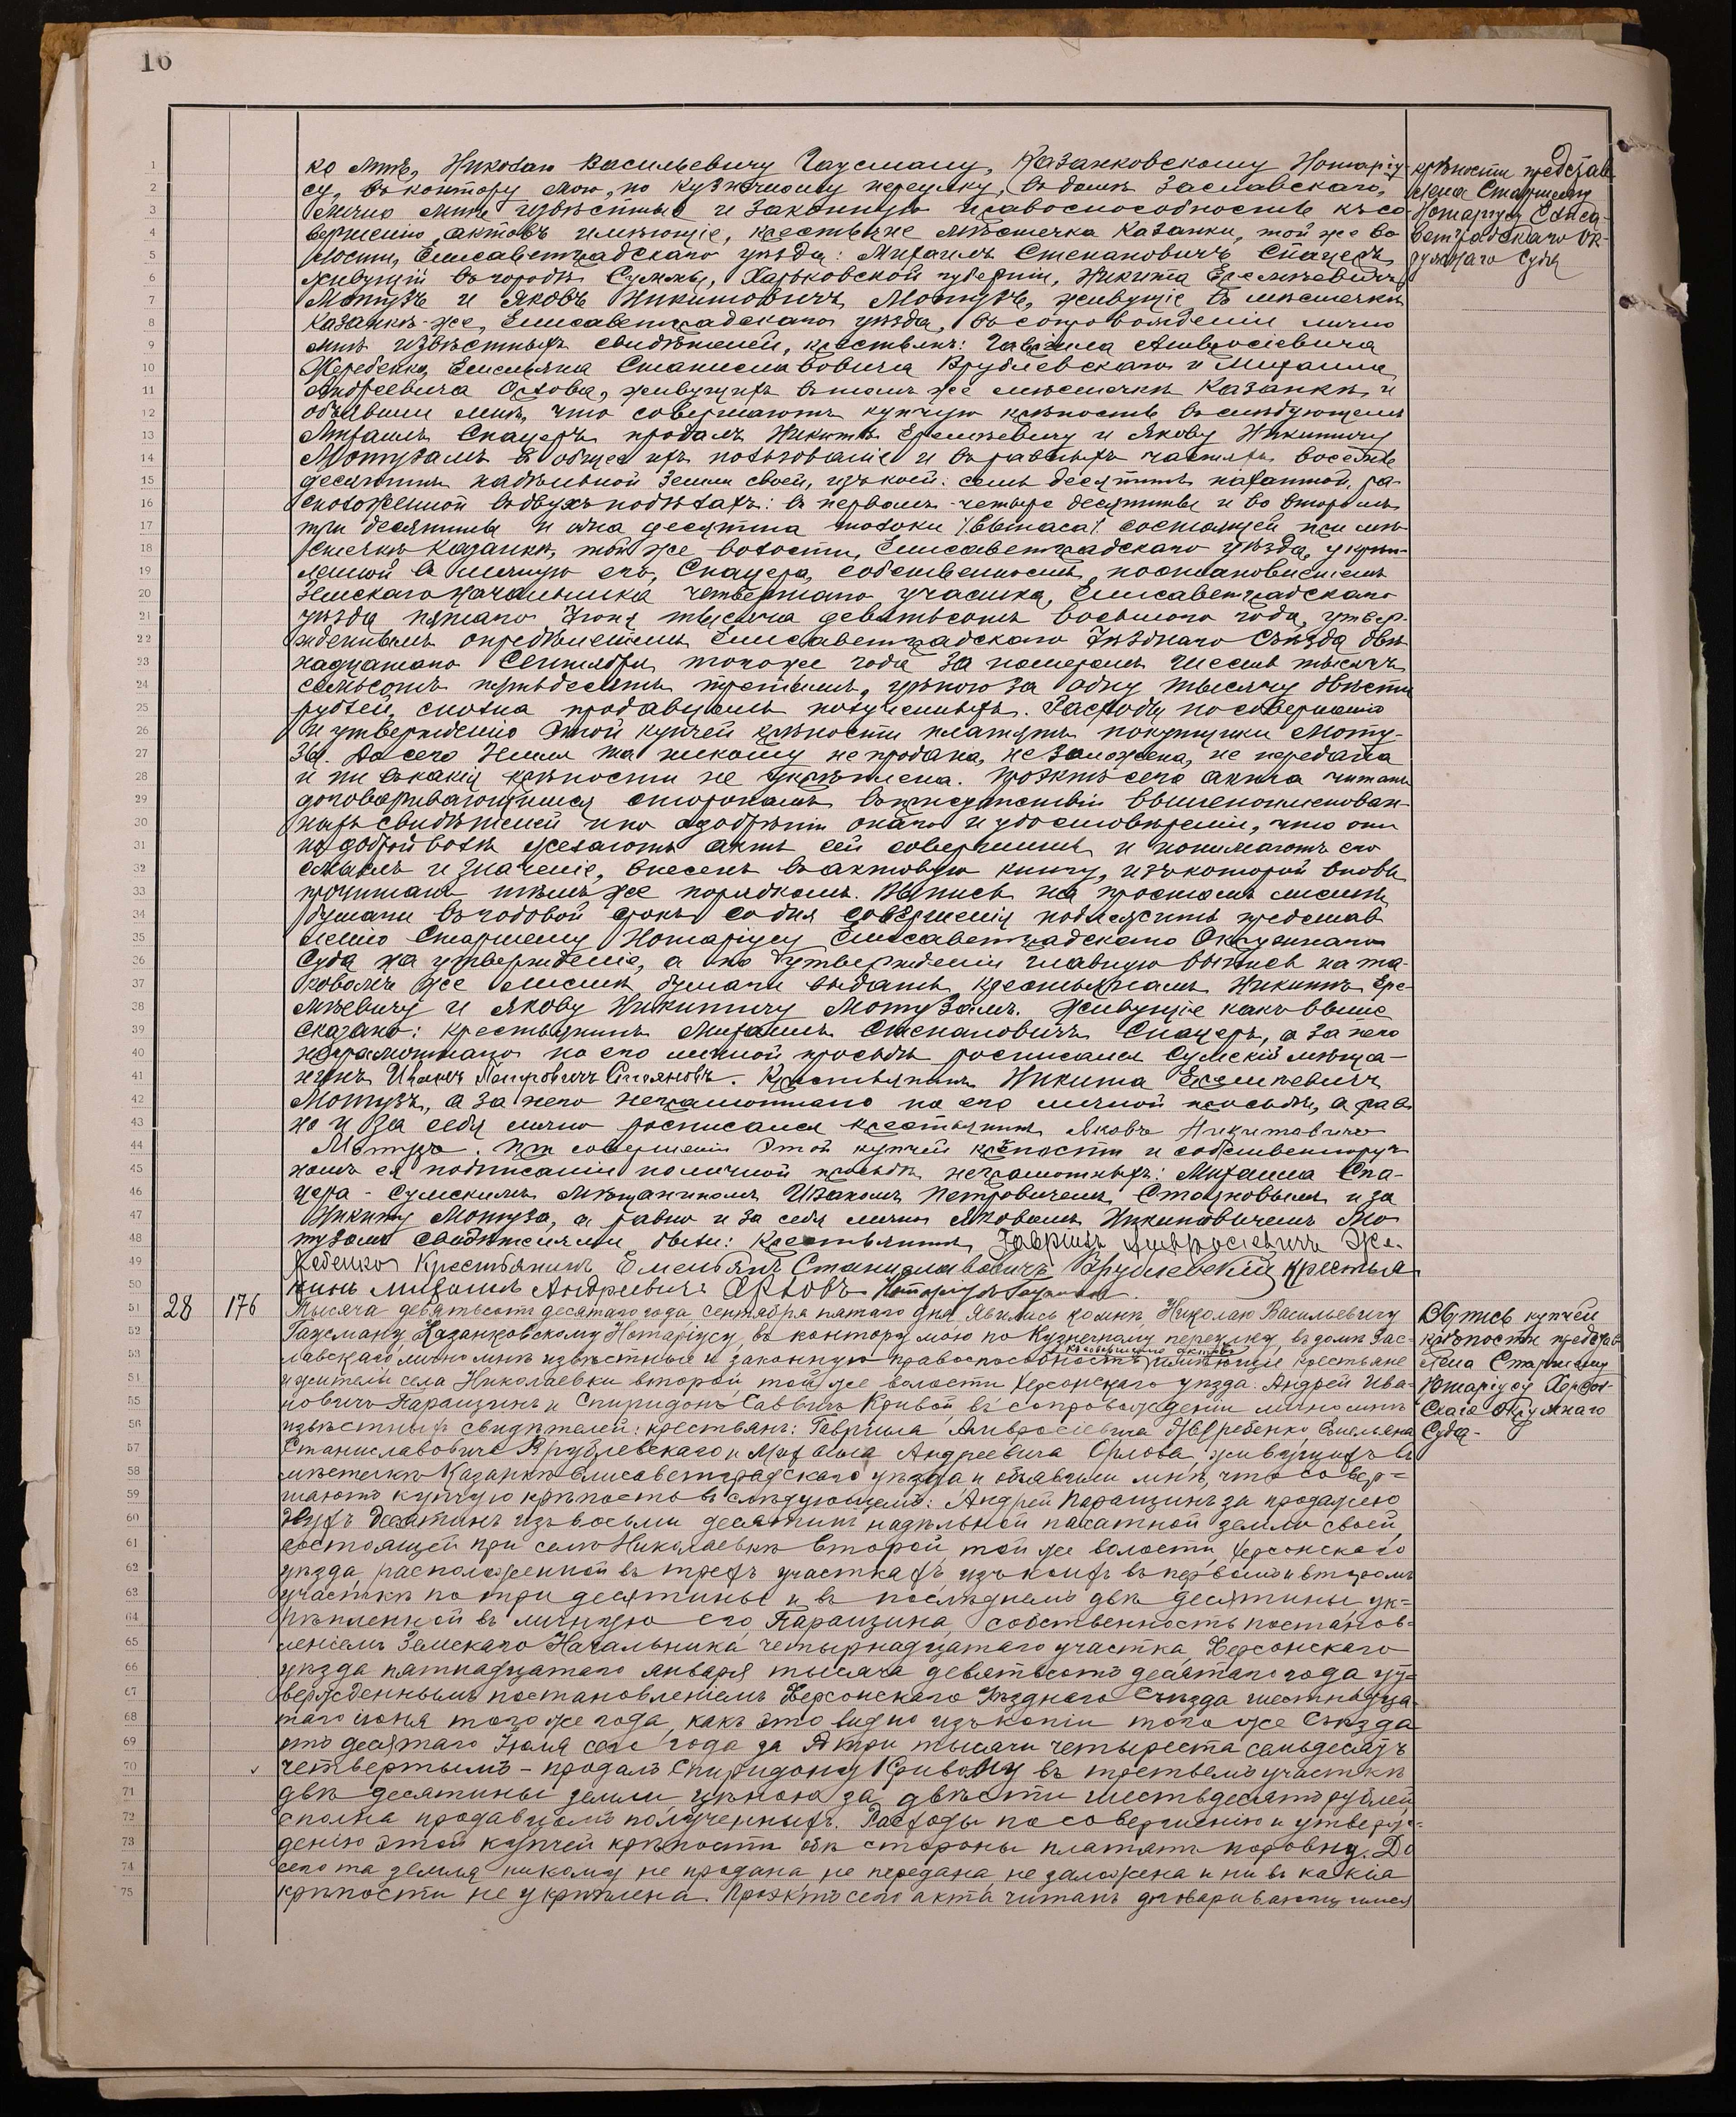 16
ко мнѣ, Николаю Васильевичу Гаусману, Казанковскому Нотаріу-
су, въ контору мою, по Кузнечному переулку, въ домѣ Заславскаго,
лично мнѣ извѣстные и законную правоспособность къ со-
вершенію актовъ имѣющіе, крестьяне мѣстечка Казанки, той же во
лости, Елисаветградскаго уѣзда: Михаилъ Степановичъ Спацеръ,
живущій въ городѣ Сумы, Харьковской губерніи, Никита Еремѣевичъ
Мотузъ и Яковъ Никитовичъ Мотузъ, живущіе въ мѣстечкѣ
Казанкѣ-же, Елисаветградскаго уѣзда, въ сопровожденіи лично
мнѣ извѣстныхъ свидѣтелей, крестьянъ: Гавріила Амвросіевича
Жеребенко, Емельяна Станиславовича Врублевскаго и Михаила
Андреевича Орлова, живущихъ въ томъ же мѣстечкѣ Казанкѣ, и
объявили мнѣ, что совершаютъ купчую крѣпость въ слѣдующемъ
Михаилъ Спацеръ продалъ Никитѣ Еремѣевичу и Якову Никитичу
Мотузамъ въ общее ихъ пользованіе и въ равныхъ частяхъ восемь
десятинъ надѣльной земли своей, изъ коей: семь десятинъ пахатной, ра-
сположенной въ двухъ подѣлахъ: въ первомъ - четыре десятины и во второмъ
три десятины и одна десятина толоки /выпаса/ состоящей при мѣ-
стечкѣ Казанкѣ, той же волости, Елисаветградскаго уѣзда, укрѣп-
ленной въ личную его, Спацера, собственность, постановленіемъ
Земскаго Начальника четвертаго участка, Елисаветградскаго
уѣзда пятаго Іюня тысяча девятьсотъ восьмого года, утвер-
жденнымъ опредѣленіемъ Елисаветградскаго Уѣзднаго Съѣзда двѣ
надцатаго Сентября того же года за номеромъ шесть тысячъ
семьсотъ пятьдесятъ третьимъ, цѣною за одну тысячу двѣсти
рублей, сполна продавцомъ полученныхъ. Расходы по совершенію
и утвержденію этой купчей крѣпости платятъ покупщики Моту-
зы. До сего земля та никому не продана, не заложена, не передана
и ни въ какія крѣпости не укрѣплена. Проэктъ сего акта читанъ
договаривающимся сторонамъ въ присутствіи вышепоименован-
ныхъ свидѣтелей и по одобреніи онаго и удостовѣреніи, что они
по доброй волѣ желаютъ актъ сей совершить и понимаютъ его
смыслъ и значеніе, внесенъ въ актовую книгу, изъ которой вновь
прочитанъ тѣмъ же порядкомъ. Выпись на простомъ листѣ
бумаги въ годовой срокъ со дня совершенія подлежитъ представ
ленію Старшему Нотаріусу Елисаветградскаго Окружнаго
Суда на утвержденіе, а по утвержденіи главную выпись на та-
ковомъ же листѣ бумаги выдать крестьянамъ Никитѣ Ере-
мѣевичу и Якову Никитичу Мотузамъ. Живущіе какъ выше
сказано: крестьянинъ Михаилъ Степановичъ Спацеръ, а за него
неграмотнаго по его личной просьбѣ росписался Сумскій мѣща-
нинъ Иванъ Петровичъ Стояновъ. Крестьянинъ Никита Еремѣевичъ
Мотузъ, а за него неграмотнаго по его личной просьбѣ, а рав
но и за себя лично росписался крестьянинъ Яковъ Никитовичъ
Мотузъ. При совершеніи этой купчей крѣпости и собственноруч
номъ ея подписаніи по личной просьбѣ неграмотныхъ: Михаила Спа-
цера - Сумскимъ мѣщаниномъ Иваномъ Петровичемъ Стояновымъ и за
Никиту Мотуза, а равно и за себя лично Яковомъ Никитовичемъ Мо
тузомъ свидѣтелями были: Крестьянинъ Гавріилъ Амвросіевичъ Же-
ребенко Крестьянинъ Емельянъ Станиславовичъ Врублевскій крестья
нинъ Михаилъ Андреевичъ Орловъ Нотаріусъ Гаусманъ
крѣпости представ
лена Старшему
Нотаріусу Елиса-
ветградскаго Ок-
ружнаго Суда
28 176 Тысяча девятьсотъ десятаго года сентября пятаго дня, явились ко мнѣ, Николаю Васильевичу
Гаусману, Казанковскому Нотаріусу, въ контору мою по Кузнечному переулку, въ домѣ Зас-
къ совершенію актовъ
лавскаго, лично мнѣ извѣстные и законную правоспособность имѣющіе крестьяне
и жители села Николаевки второй, той же волости Херсонскаго уѣзда. Андрей Ива-
новичъ Паращинъ и Спиридонъ Саввичъ Кривой, въ сопровожденіи лично мнѣ
извѣстныхъ свидѣтелей: крестьянъ: Гавріила Амвросіевича Жеребенко, Емельяна
Станиславовича Врублевскаго и Михаила Андреевича Орлова, живущихъ въ
мѣстечкѣ Казанкѣ Елисаветградскаго уѣзда, и объявили мнѣ, что совер=
шаютъ купчую крѣпость въ слѣдующемъ: Андрей Паращинъ за продажею
двухъ десятинъ изъ восьми десятинъ надѣльной пахатной земли своей,
состоящей при селѣ Николаевкѣ второй, той же волости, Херсонскаго
уѣзда, расположенной въ трехъ участкахъ, изъ коихъ въ первомъ и второмъ
участкѣ по три десятины и въ послѣднемъ двѣ десятины, ук=
рѣпленной въ личную его, Паращина, собственность постанов=
леніемъ Земскаго Начальника четырнадцатаго участка, Херсонскаго
уѣзда пятнадцатаго января тысяча девятьсотъ десятаго года, ут=
вержденнымъ постановленіемъ Херсонскаго Уѣзднаго Съѣзда шестнадца-
таго іюня того же года, какъ это видно изъ копіи того же Съѣзда
отъ десятаго Іюля сего года за № три тысячи четыреста семьдесятъ
четвертымъ - продалъ Спиридону Кривому въ третьемъ участкѣ
двѣ десятины земли, цѣною за двѣсти шестьдесятъ рублей
сполна продавцомъ полученныхъ. Расходы по совершенію и утверж=
денію этой купчей крѣпости обѣ стороны платятъ поровну. До
сего та земля никому не продана, не передана, не заложена и ни въ какія
крѣпости не укрѣплена. Проэктъ сего акта читанъ договаривающимся
Выпись купчей
крѣпости представ
лена Старшему
Нотаріусу Херсон-
скаго Окружнаго
Суда-